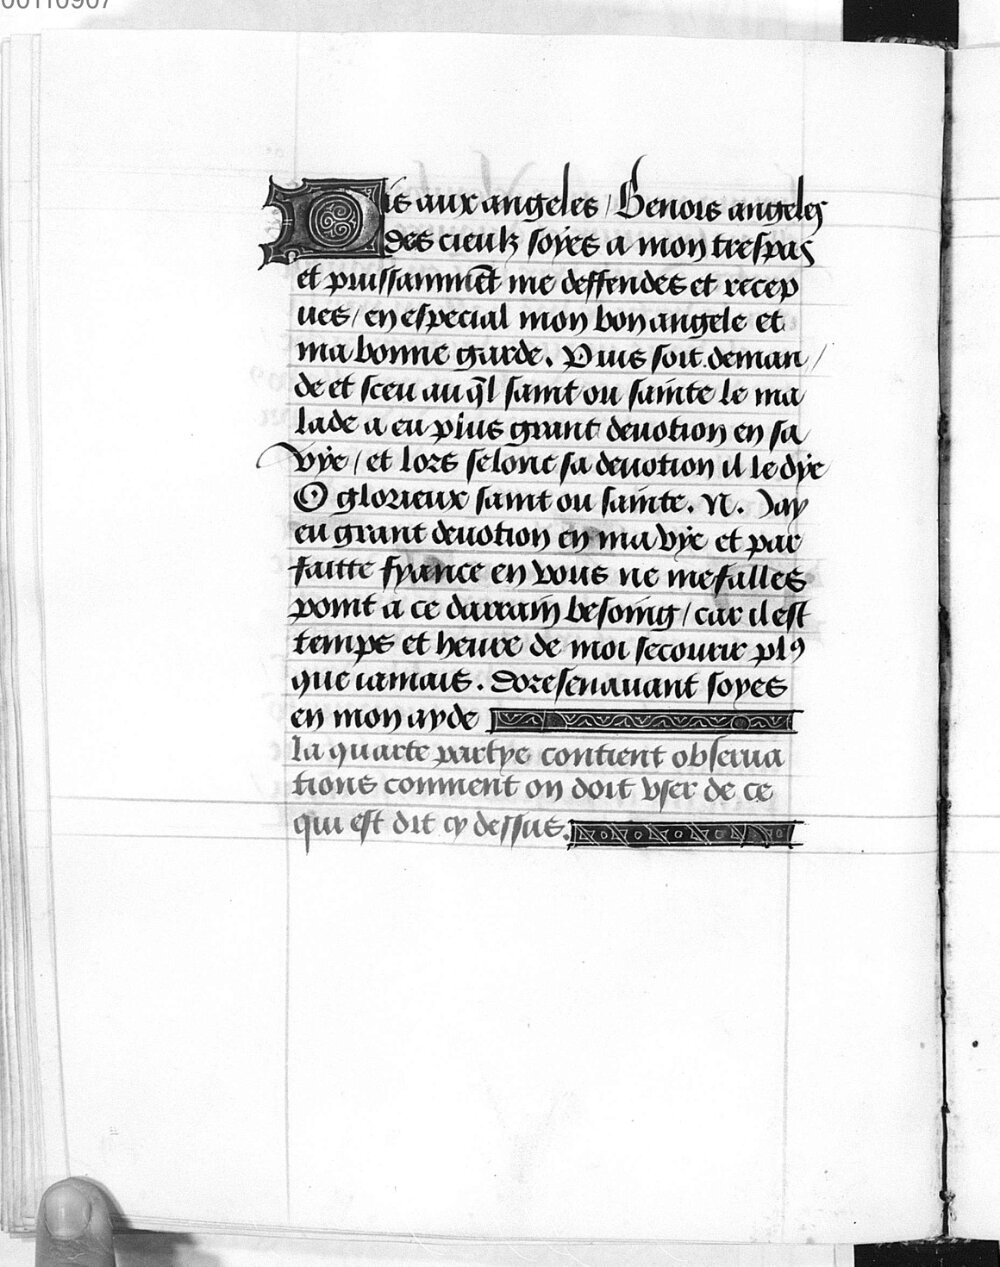 00110907
Dis aux angeles / Benois angeles
des cieulx soyes a mon trespas
et puissamme͂t me deffendes et recep
ues / en especial mon bon angele et
ma bonne garde. Puis soit deman /
de et sceu au q̃l saint ou sainte le ma
lade a eu plus grant deuotion en sa
vye / et lors selonc sa deuotion il le dye
O glorieux saint ou sainte. N. Jay
eu grant deuotion en ma vye et par
faitte fyance en vous ne me falles
point a ce darrain besoing / car il est
temps et heure de moi secourir plꝰ
que iamais. Doresenauant soyes
en mon ayde
la quarte partye contient obserua
tions comment on doit vser de ce
qui est dit cy dessus.